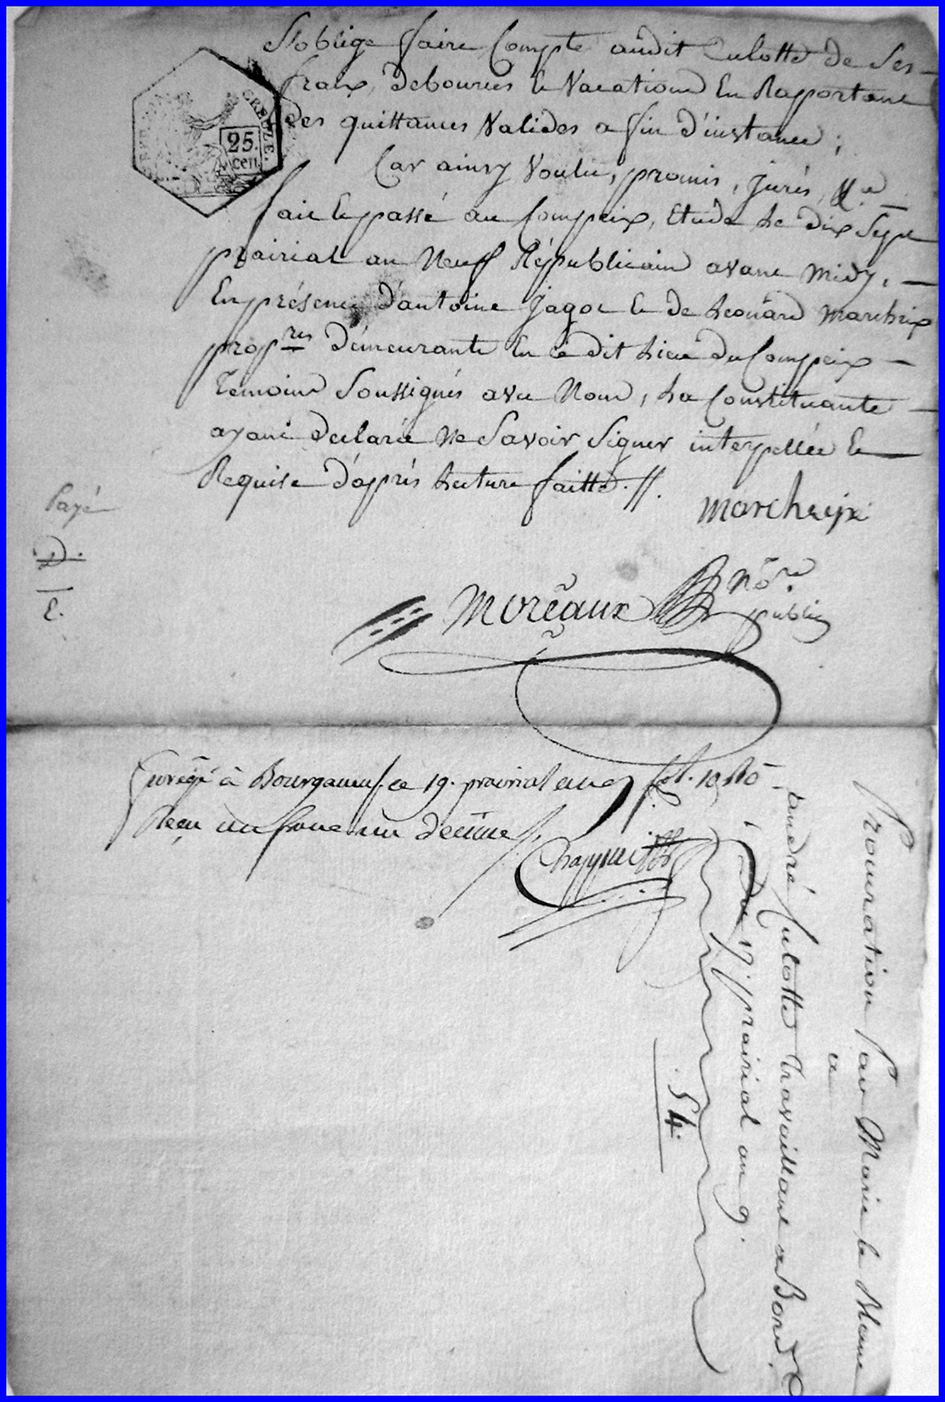 S'oblige faire Compte audit Culotte de Ses
fraix, debources & Vacations En Rapportant
des quittances Valides a fin d'instance ;
Car ainsy Voulu, promis, Jurés,
fait & passé au Compeix, Etude Le dix Sept
prairial an Neuf Républicain avant midy,
En présence d'antoine Jagot & de Léonard Marcheix
propres demeurants En ce dit Lieu du Compeix
Temoins Soussignés avec Nous, La Constituante
ayant declarée Ne Savoir Signer interpellée &
Requise d'après Lecture faitte.
marcheix
Moreaux nore
public
CREUZE.
25.
cen.
Payé
D.
E.
Enregé à Bourganeuf ce 19. prairial an 9 fol.
Reçu un franc un decime
Procuration par Marie le Blanc
a
andré Culotte travaillant a Bord
Du 17 prairial an 9.
54.